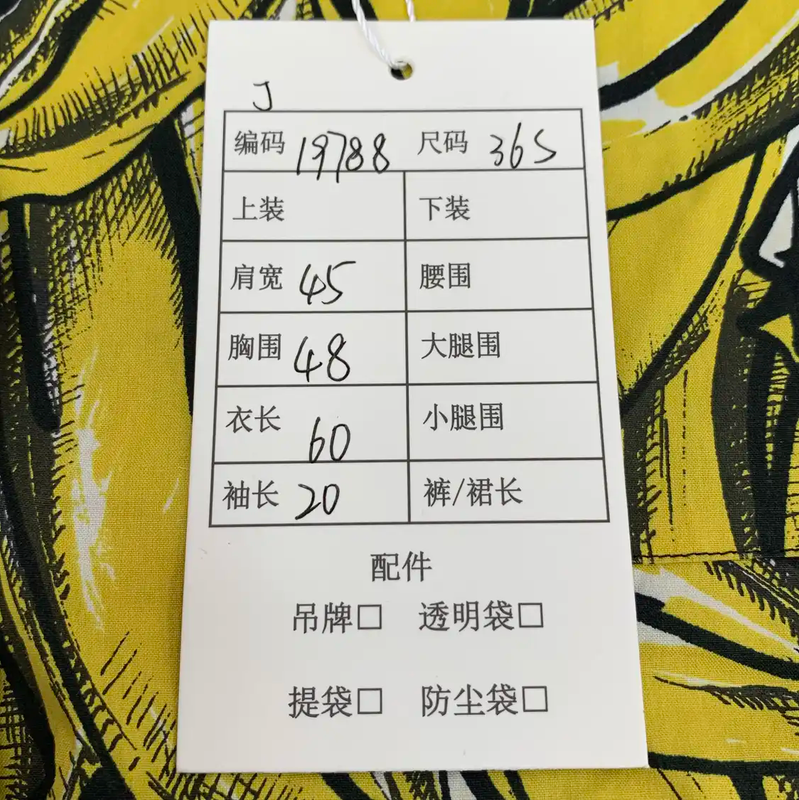 J
编码 19788 尺码 36S
上装 下装
肩宽 45 腰围
胸围 48 大腿围
衣长 60 小腿围
袖长 20 裤/裙长
配件
吊牌□ 透明袋□
提袋□ 防尘袋□